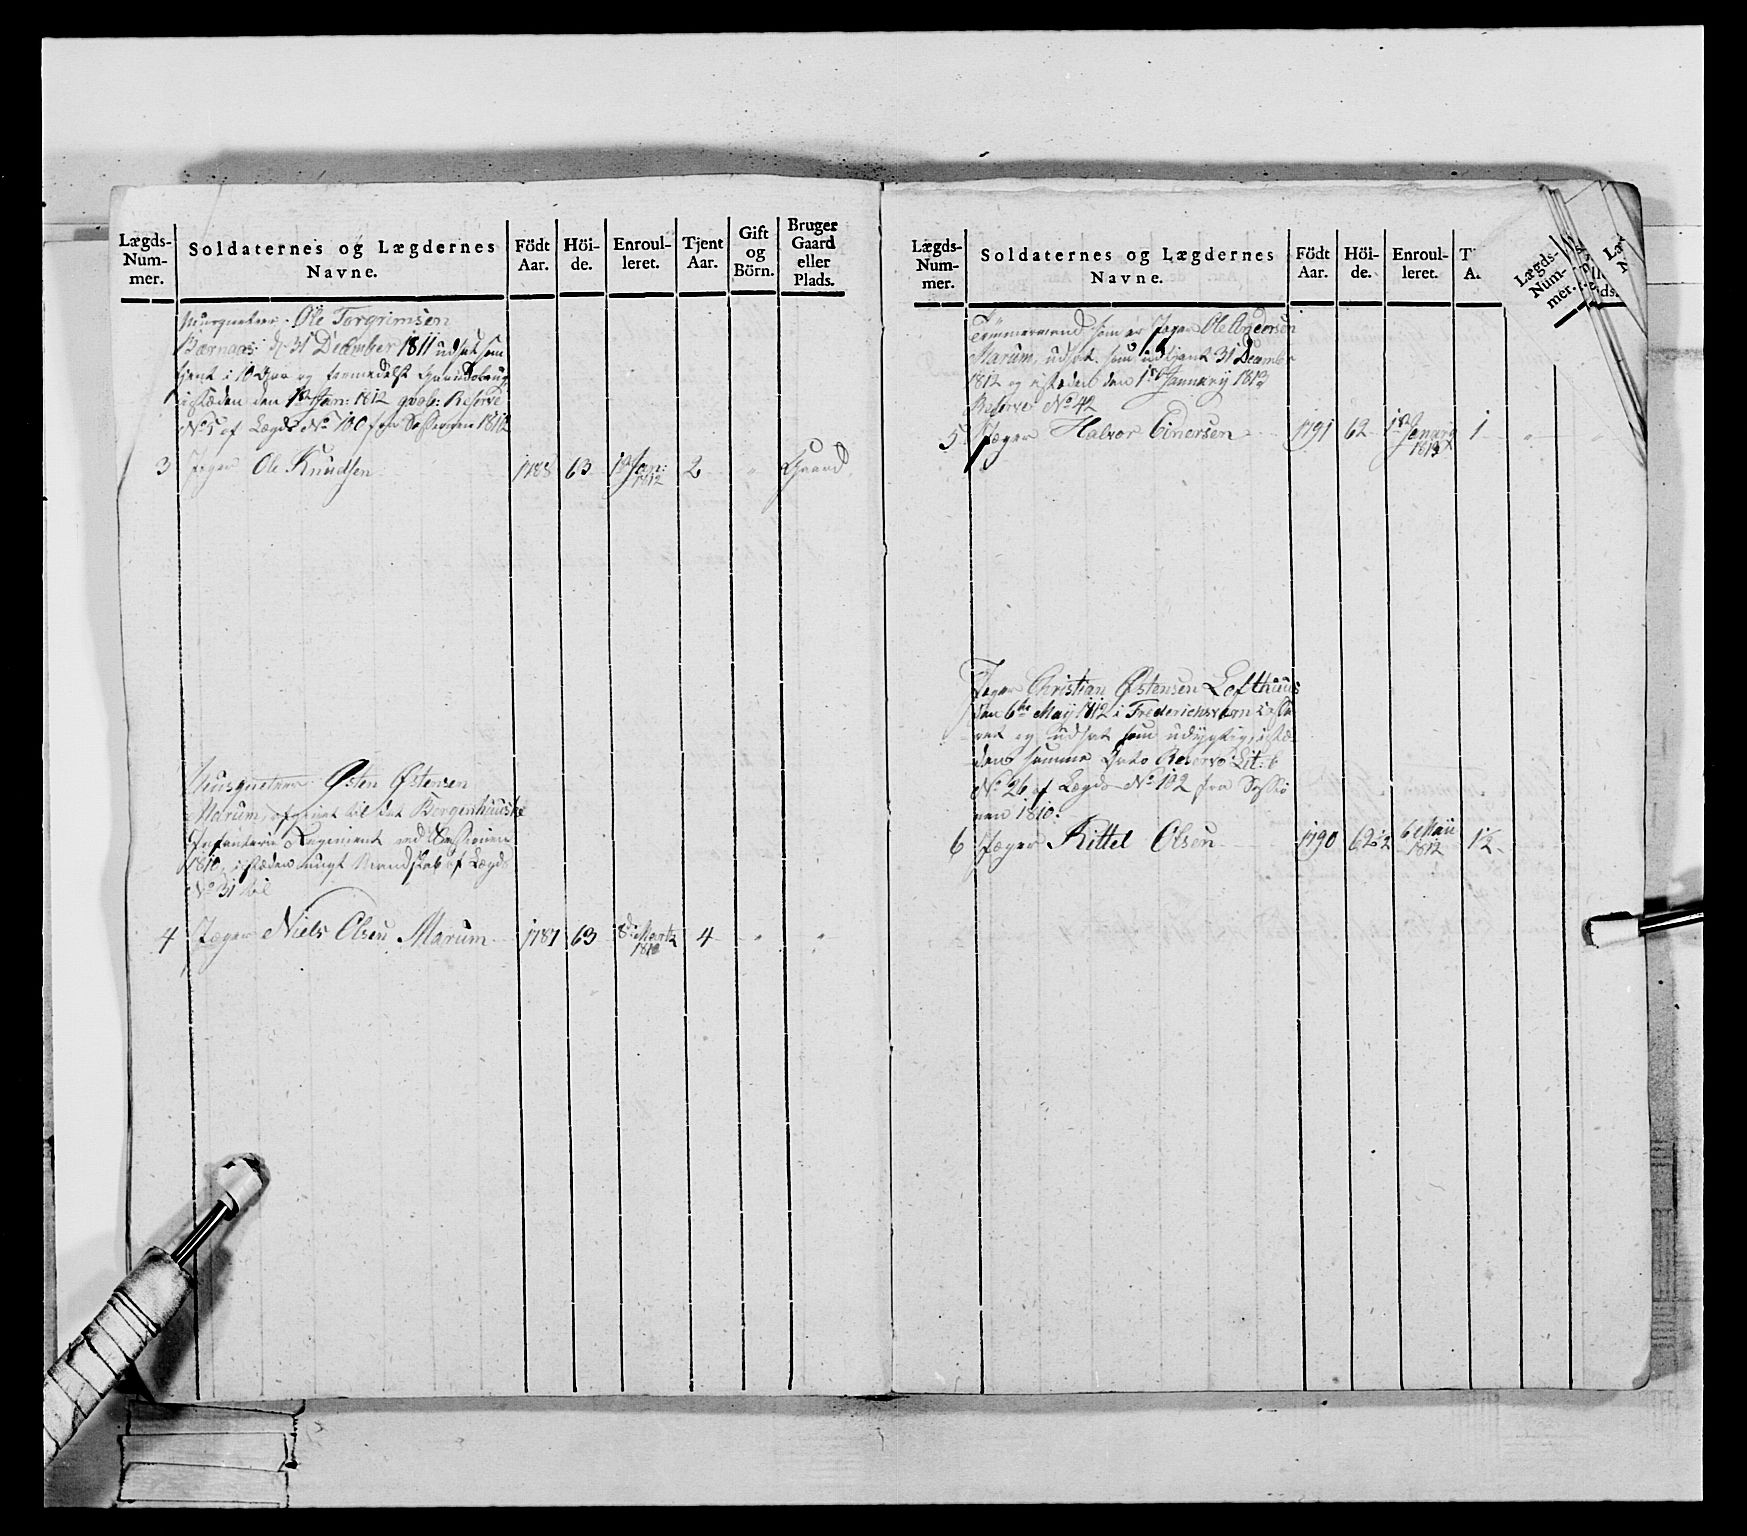 Lægds-Num-mer. Soldaternes og Lægdernes Navne. Födt Aar. Höi-de. Enroul-leret. Tjent Aar. Gift og Börn. Bruger Gaard eller Plads.
Musqueteer Ole Torgrimsen
Bærnaas d: 31 December 1811 udsat som
tjent i 10 Aar og formedelst Gaardsbrug,
istæden den 1ste Jan: 1812 Reserve
No 5 af Lægds No 100 fra Sessionen 1812
3 Jæger Ole Knudsen 1788 63 1ste Jan: 1812 2 " Gaard
Musqueteer Østen Østensen
Marum, afgivet til det Bergenhuuske
Infanterie Regiment ved Sessionen
1810, istæden nygt Mandskab af Lægds
No 31 til
4 Jæger Niels Olsen Marum 1787 63 8de Martz 1810 4 " "
Lægds-Num-mer. Soldaternes og Lægdernes Navne. Födt Aar. Höi-de. Enroul-leret. T A.
Tömmermand som er Jæger Ole Andersen
Marum, udsat som udtjent 31 December
1812 og istæden den 1ste January 1813
Reserve No 42
5 Jæger Halvor Einersen 1791 62 1ste January 1813 1 "
Jæger Christian Østensen Lofthuus
den 6te Maij 1812 i Frederichsværn
og udsat som udygtig, istæ-
den samme Dato Reserve Lit:
No 26 af Lægds No 102 fra Sessio
nen 1810.
6 Jæger Kittel Olsen 1790 62 1/2 6 Maii 1812 1 1/2
Lægds-Num-mer.
Læ
ds.